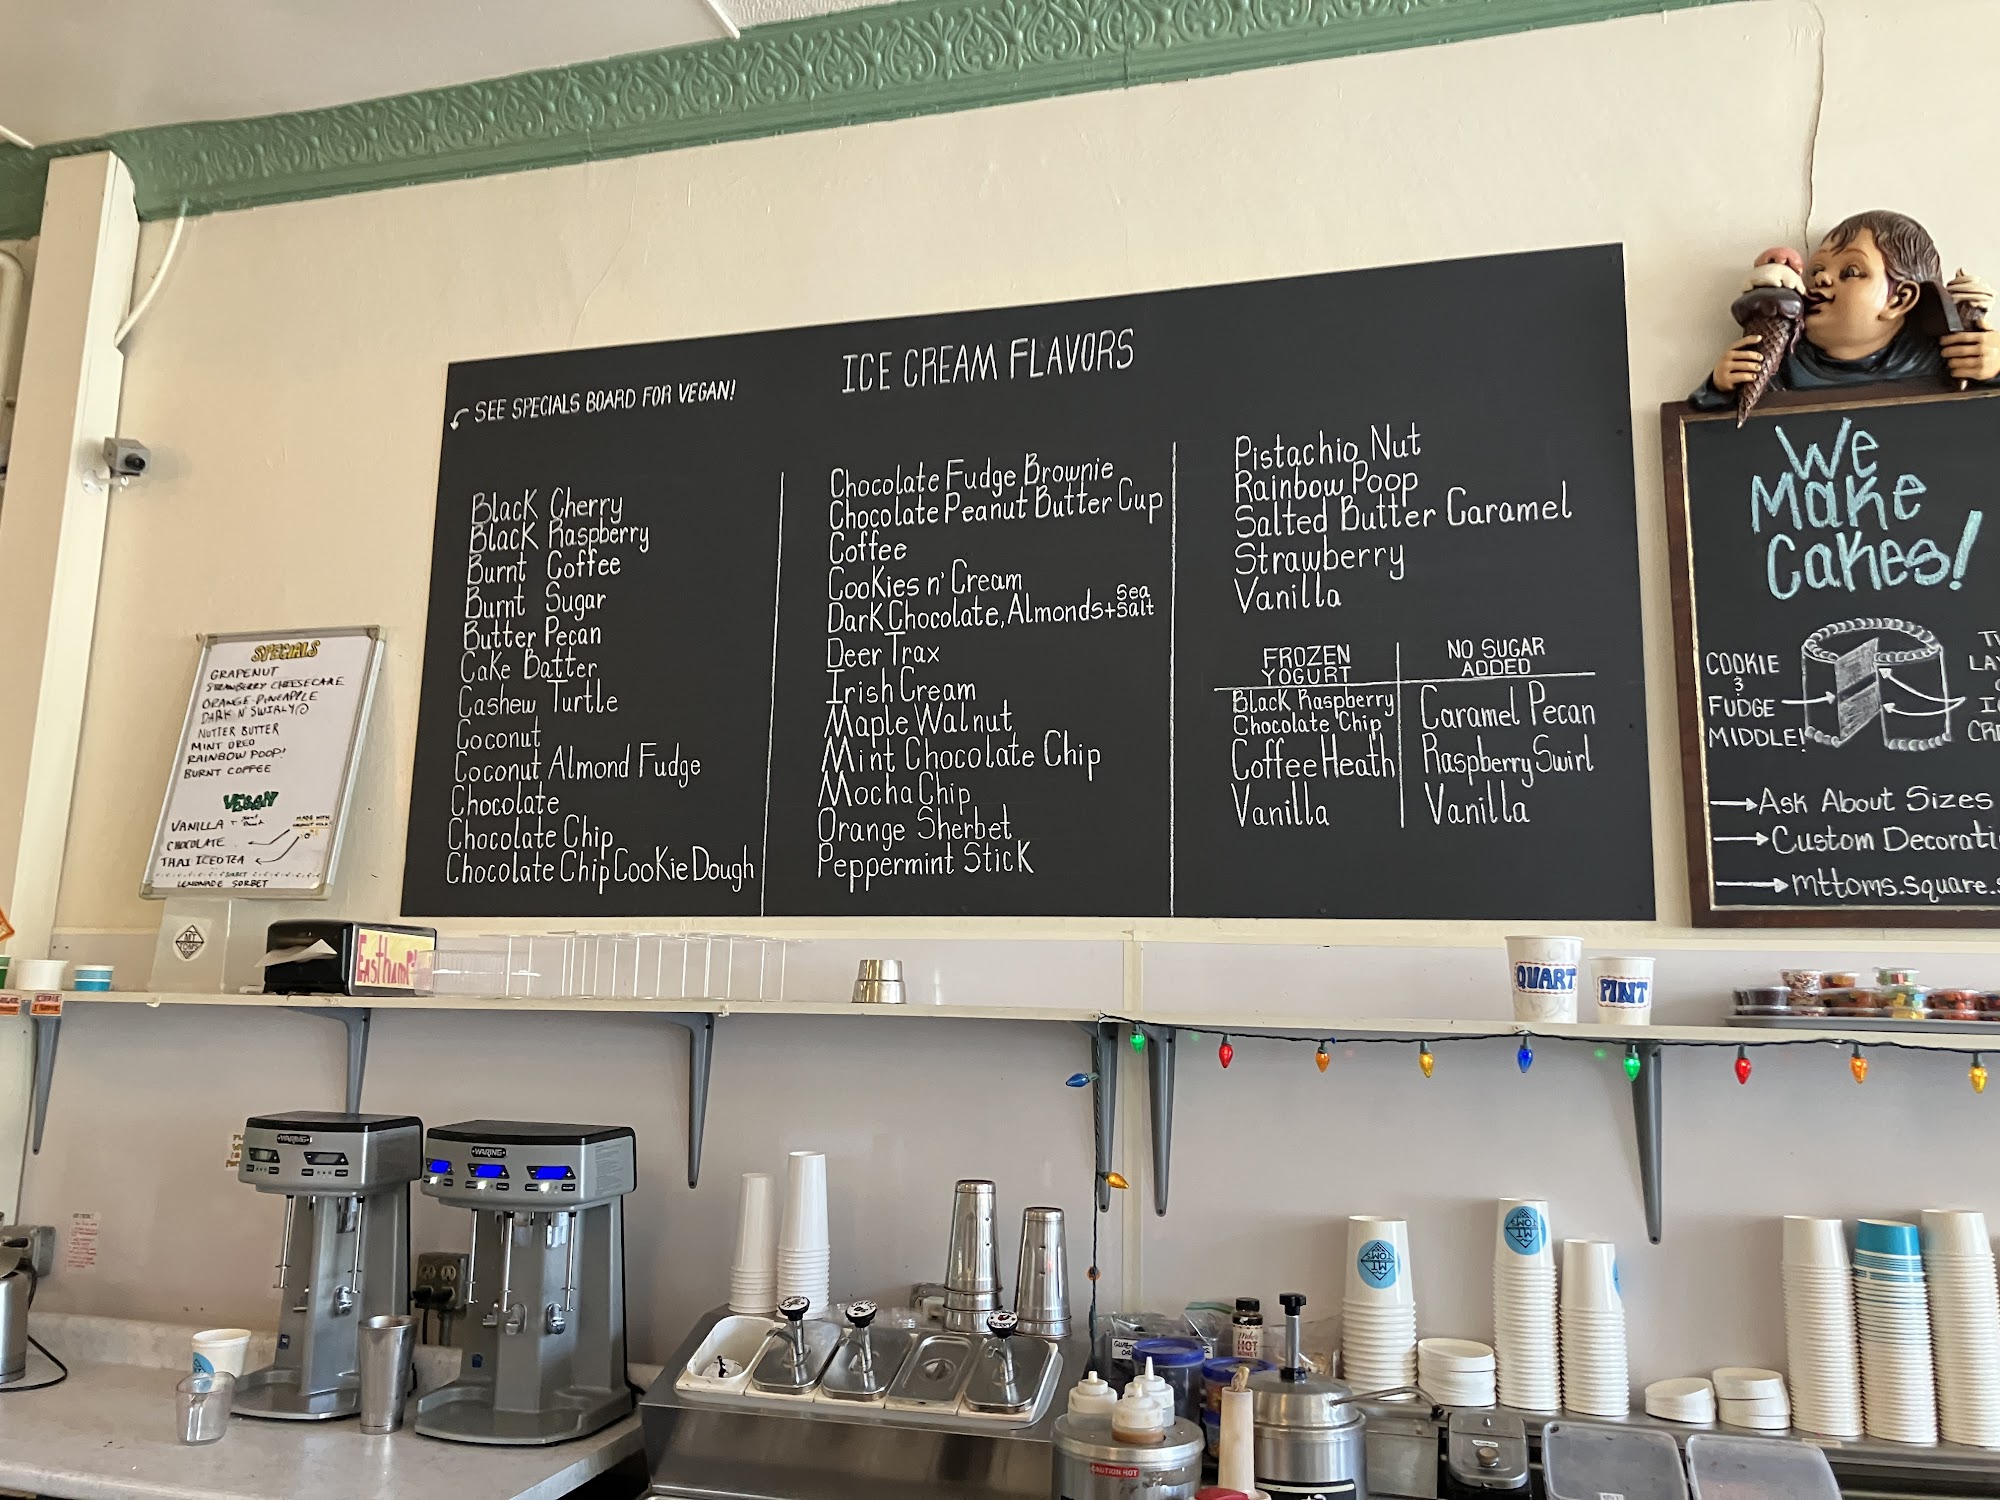 ICE CREAM FLAVORS
SEE SPECIALS BOARD FOR VEGAN!
Black Cherry
Black Raspberry
Burnt Coffee
Burnt Sugar
Butter Pecan
Cake Batter
Cashew Turtle
Coconut
Coconut Almond Fudge
Chocolate
Chocolate Chip
Chocolate Chip Cookie Dough
Chocolate Fudge Brownie
Chocolate Peanut Butter Cup
Coffee
Cookies n' Cream
Dark Chocolate, Almonds + Sea Salt
Deer Trax
Irish Cream
Maple Walnut
Mint Chocolate Chip
Mocha Chip
Orange Sherbet
Peppermint Stick
Pistachio Nut
Rainbow Poop
Salted Butter Caramel
Strawberry
Vanilla
FROZEN
YOGURT
Black Raspberry
Chocolate Chip
Coffee Heath
Vanilla
NO SUGAR
ADDED
Caramel Pecan
Raspberry Swirl
Vanilla
SPECIALS
GRAPENUT
STRAWBERRY CHEESECAKE
ORANGE-PINEAPPLE
DARK N' SWIRLY
NUTTER BUTTER
MINT OREO
RAINBOW POOP!
BURNT COFFEE
VEGAN
VANILLA +
MADE WITH
CHOCOLATE
THAI ICED TEA
SORBET
LEMONADE SORBET
We
Make
Cakes!
COOKIE
&
FUDGE
MIDDLE!
Ask About Sizes
Custom Decorati
mttoms.square.s
MT
TOMS
Eastham
QUART
PINT
WARING
WARING
MT
TOMS
MT
TOMS
Mike's
HOT
HONEY
CAUTION HOT